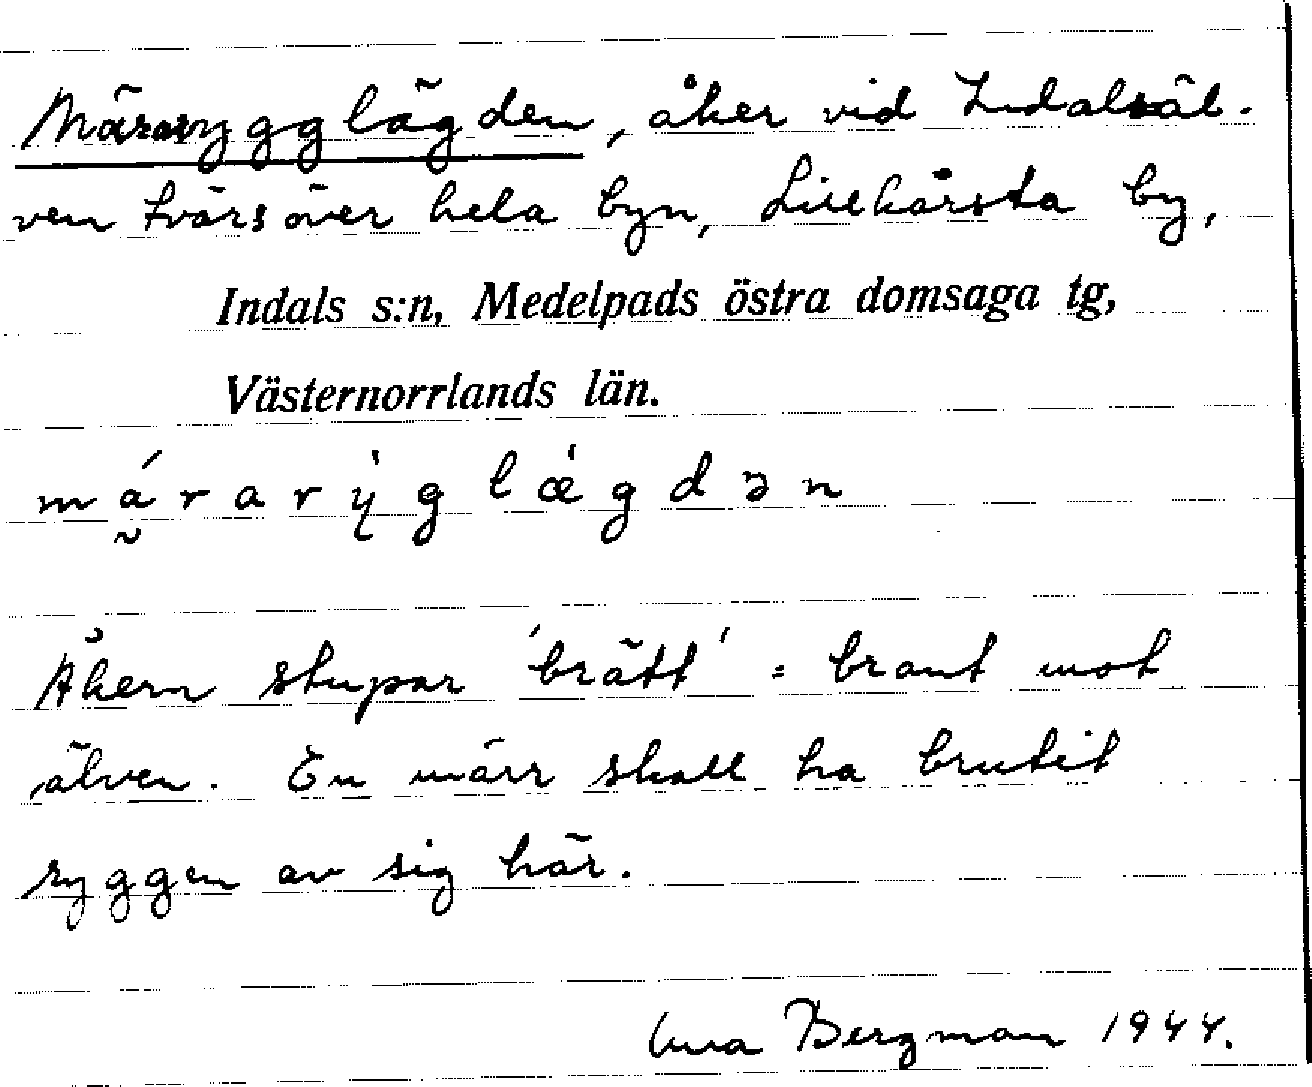 Märarygglägden, åker vid Indalsäl-
ven tvärs över hela byn, Lillhärsta by,
Indals s:n, Medelpads östra domsaga tg,
Västernorrlands län.
má̰rarỳglǽgdən
Åkern stupar 'brätt' = brant mot
älven. En märr skall ha brutit
ryggen av sig här.
Bergman 1944.